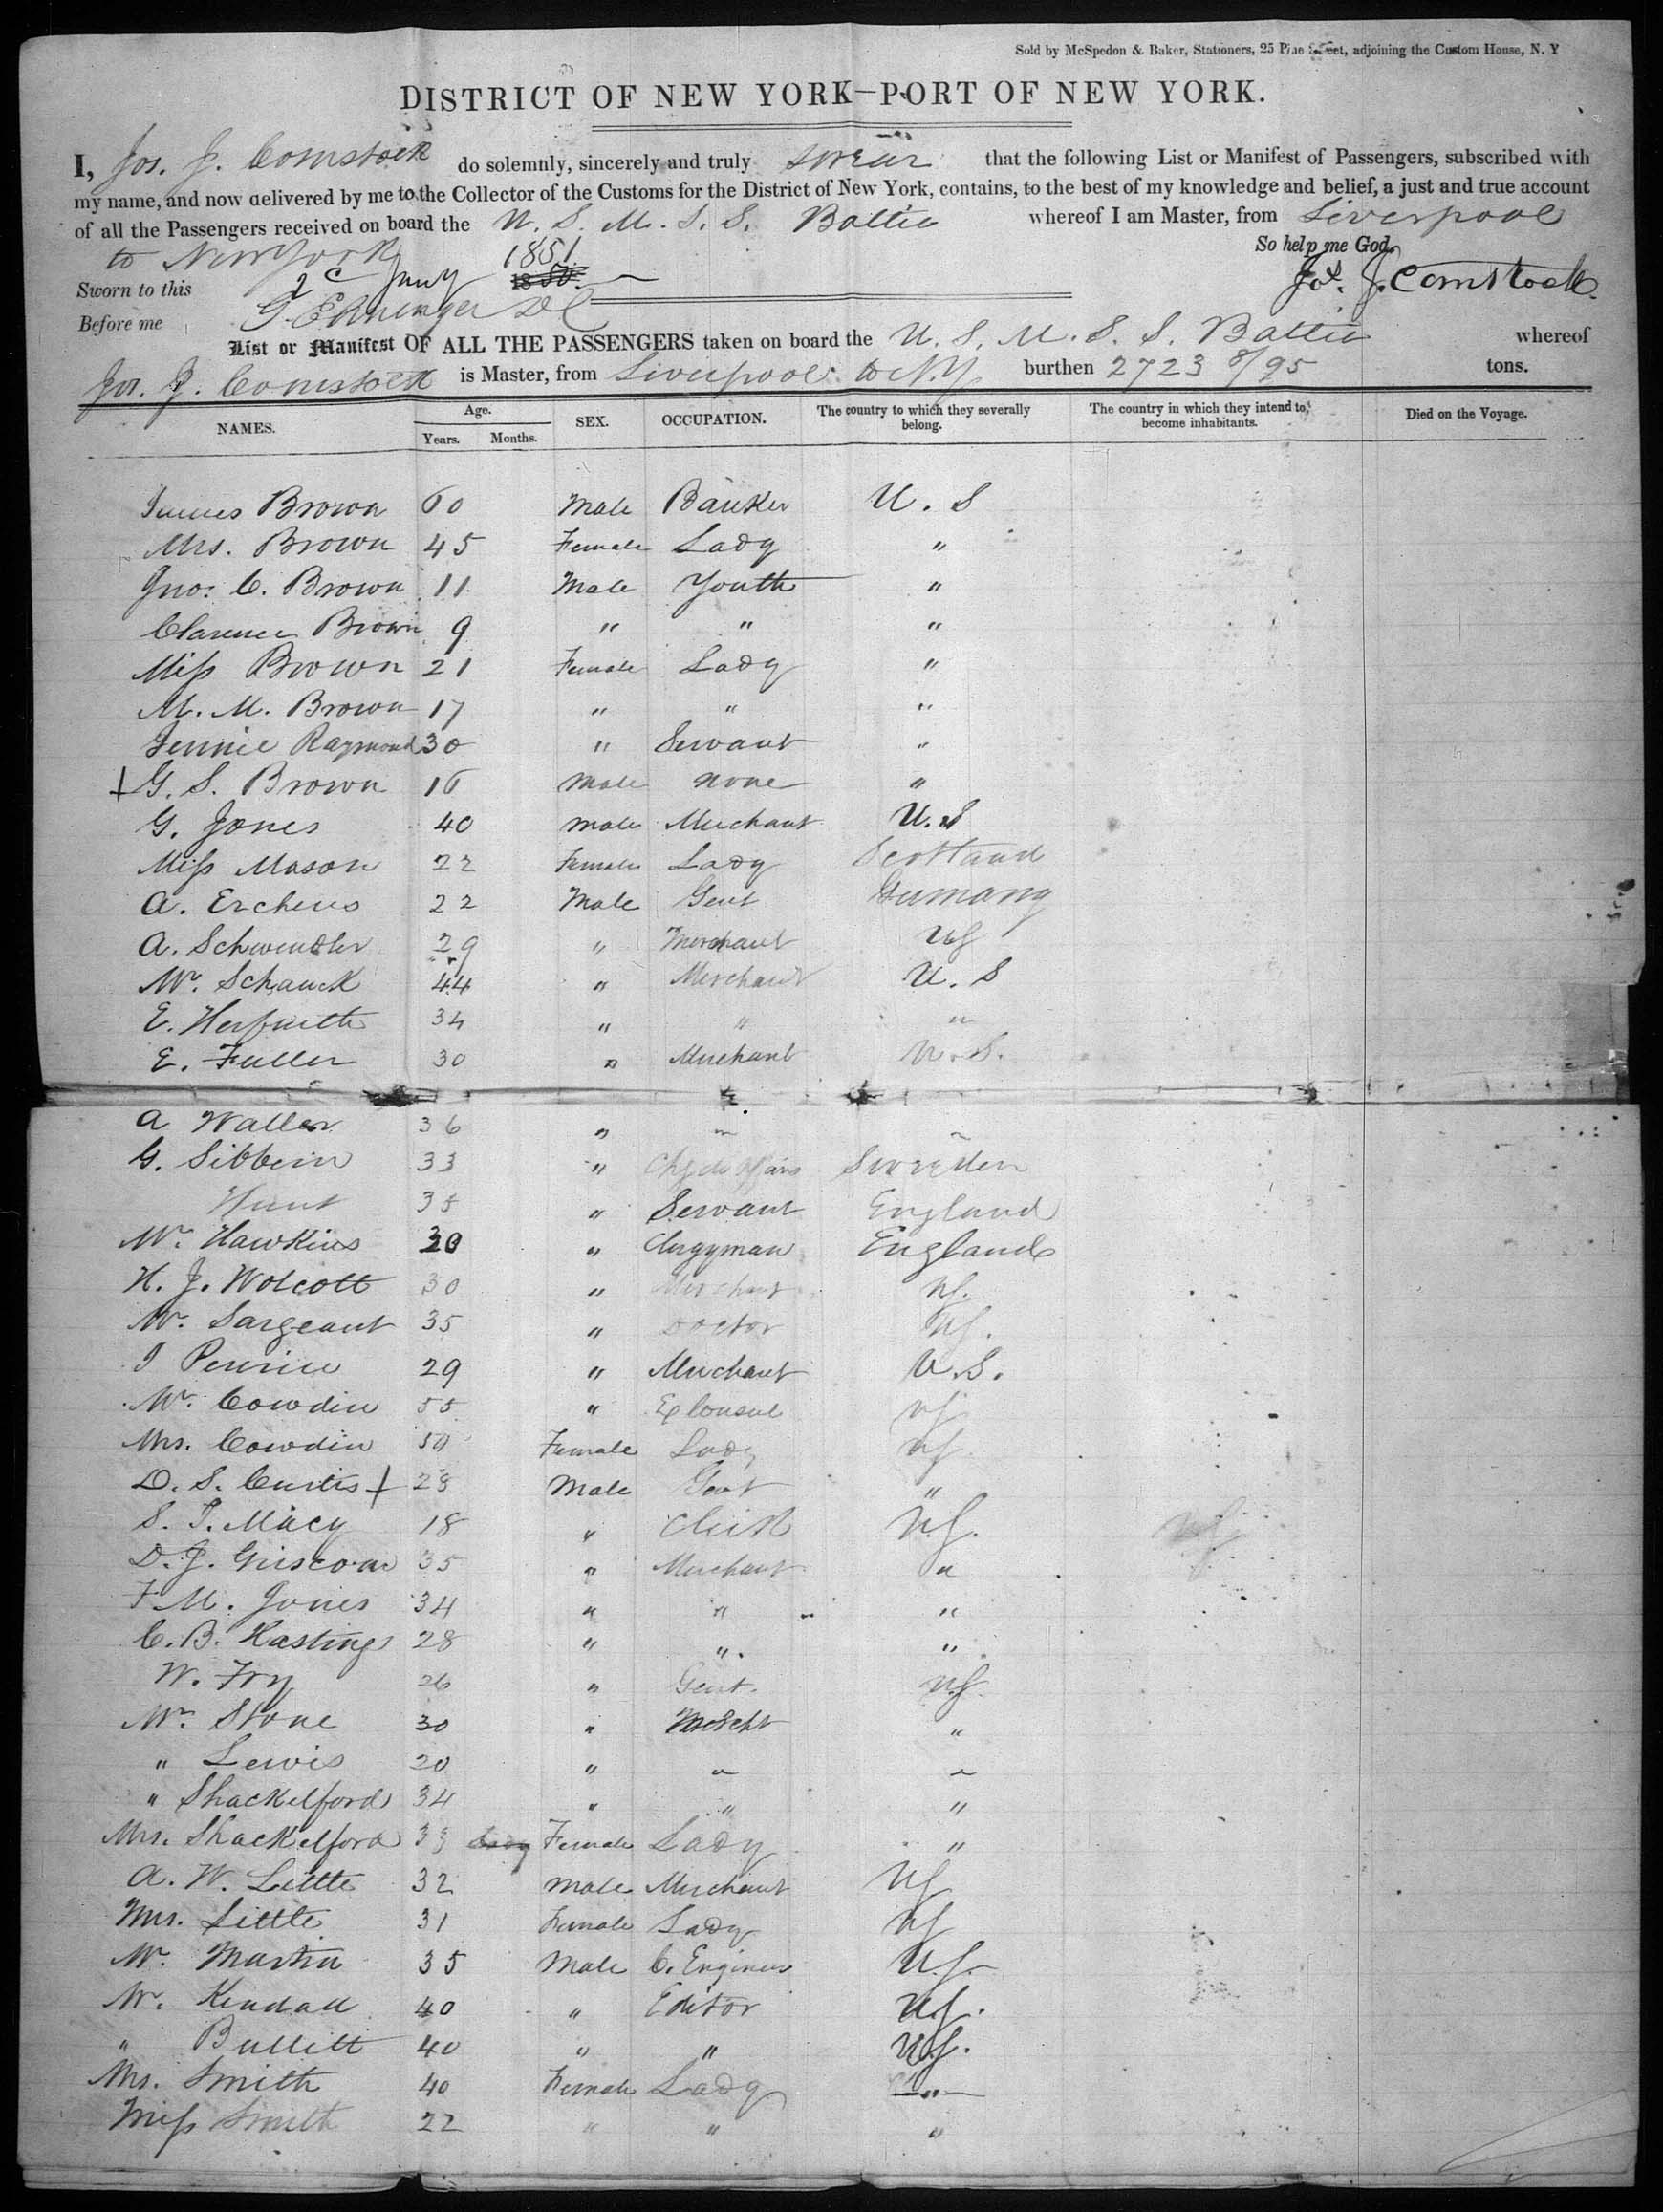 Sold by McSpedon & Baker, Stationers, 25 Pine Street, adjoining the Custom House, N. Y
DISTRICT OF NEW YORK—PORT OF NEW YORK.
I, Jos. J. Comstock do solemnly, sincerely and truly swear that the following List or Manifest of Passengers, subscribed with
my name, and now delivered by me to the Collector of the Customs for the District of New York, contains, to the best of my knowledge and belief, a just and true account
of all the Passengers received on board the U. S. M. S. S. Baltic whereof I am Master, from Liverpool
to New York So help me God.
Sworn to this 2d Jany 1851 1850. Jos. J. Comstock.
Before me
List or Manifest OF ALL THE PASSENGERS taken on board the U. S. M. S. S. Baltic whereof
Jos. J. Comstock is Master, from Liverpool to N.Y. burthen 2723 8/95 tons.
NAMES. Age. Years. Months. SEX. OCCUPATION. The country to which they severally belong. The country in which they intend to become inhabitants. Died on the Voyage.
James Brown 60 Male Banker U. S
Mrs. Brown 45 Female Lady "
Jno: C. Brown 11 Male Youth "
Clarence Brown 9 " " "
Miss Brown 21 Female Lady "
M. M. Brown 17 " " "
Jennie Raymond 30 " Servant "
+ G. S. Brown 16 Male none "
G. Jones 40 male Merchant U. S
Miss Mason 22 Female Lady Scotland
A. Erchens 22 Male Gent Germany
A. Schwendler 29 " Merchant US
Mr. Schauck 44 " Merchant U. S
E. 34 " " "
E. Fuller 30 " Merchant U. S.
A Waller 36 " " "
G. Sibbern 33 " Chg de Affairs Sweden
Hunt 35 " Servant England
Mr. Hawkins 30 " Clergyman England
H. J. Wolcott 30 " Merchant US.
Mr. Sargeant 35 " Doctor US.
I 29 " Merchant U. S.
Mr. Cowdin 55 " Ex Consul US
Mrs. Cowdin 50 Female Lady US
D. S. Curtis + 28 Male Gent "
S. T. Macy 18 " Clerk US. US
D. J. Griscom 35 " Merchant "
F M. Jones 34 " " "
C. B. Hastings 28 " " "
W. Fry 26 " Gent. US.
Mr. Stone 30 " Mercht "
" Lewis 20 " " "
" Shackelford 34 " " "
Mrs. Shackelford 33 Lady Female Lady "
A. W. Little 32 male Merchant US
Mrs. Little 31 Female Lady US
Mr. Martin 35 Male C. Engineer US.
Mr. Kendall 40 " Editor US.
" Bullitt 40 " " US.
Mrs. Smith 40 Female Lady "
Miss Smith 22 " " "